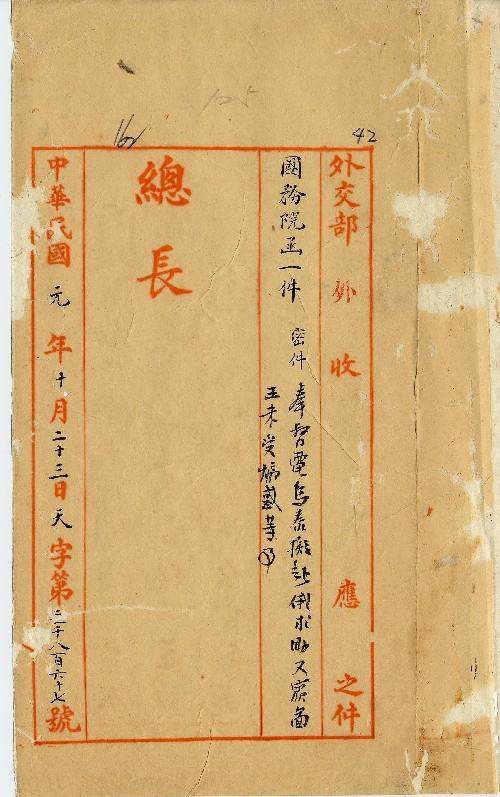 125
16
42
外交部 外 收 應 之件
國務院函一件 密件 奉智電烏泰擬赴俄求助又賓圖
王未受煽惑等因
總長
中華民國元年十月二十三日天字第二千八百六十七號